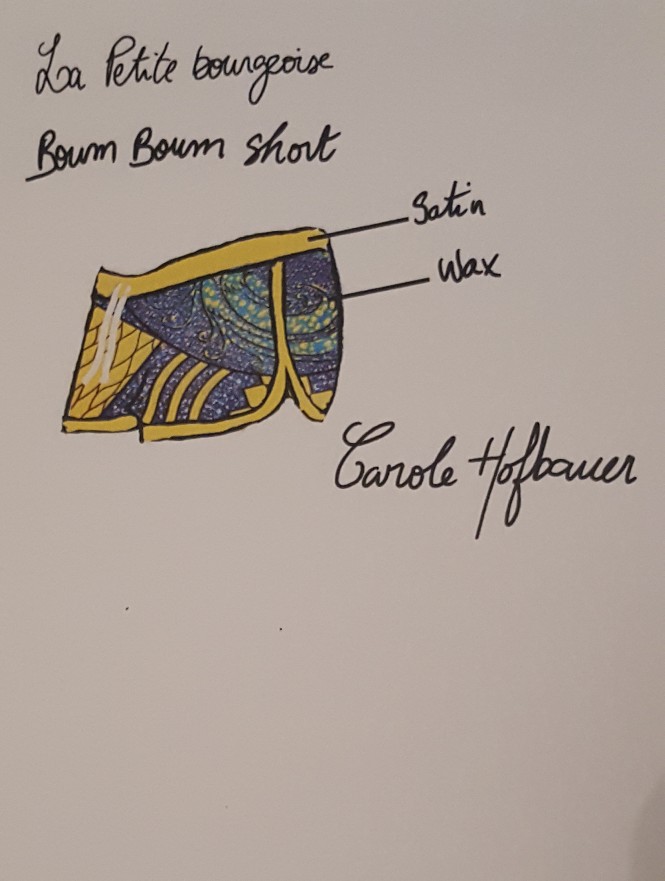 La Petite bourgeoise
Boum Boum short
Satin
Wax
Carole Hofbauer